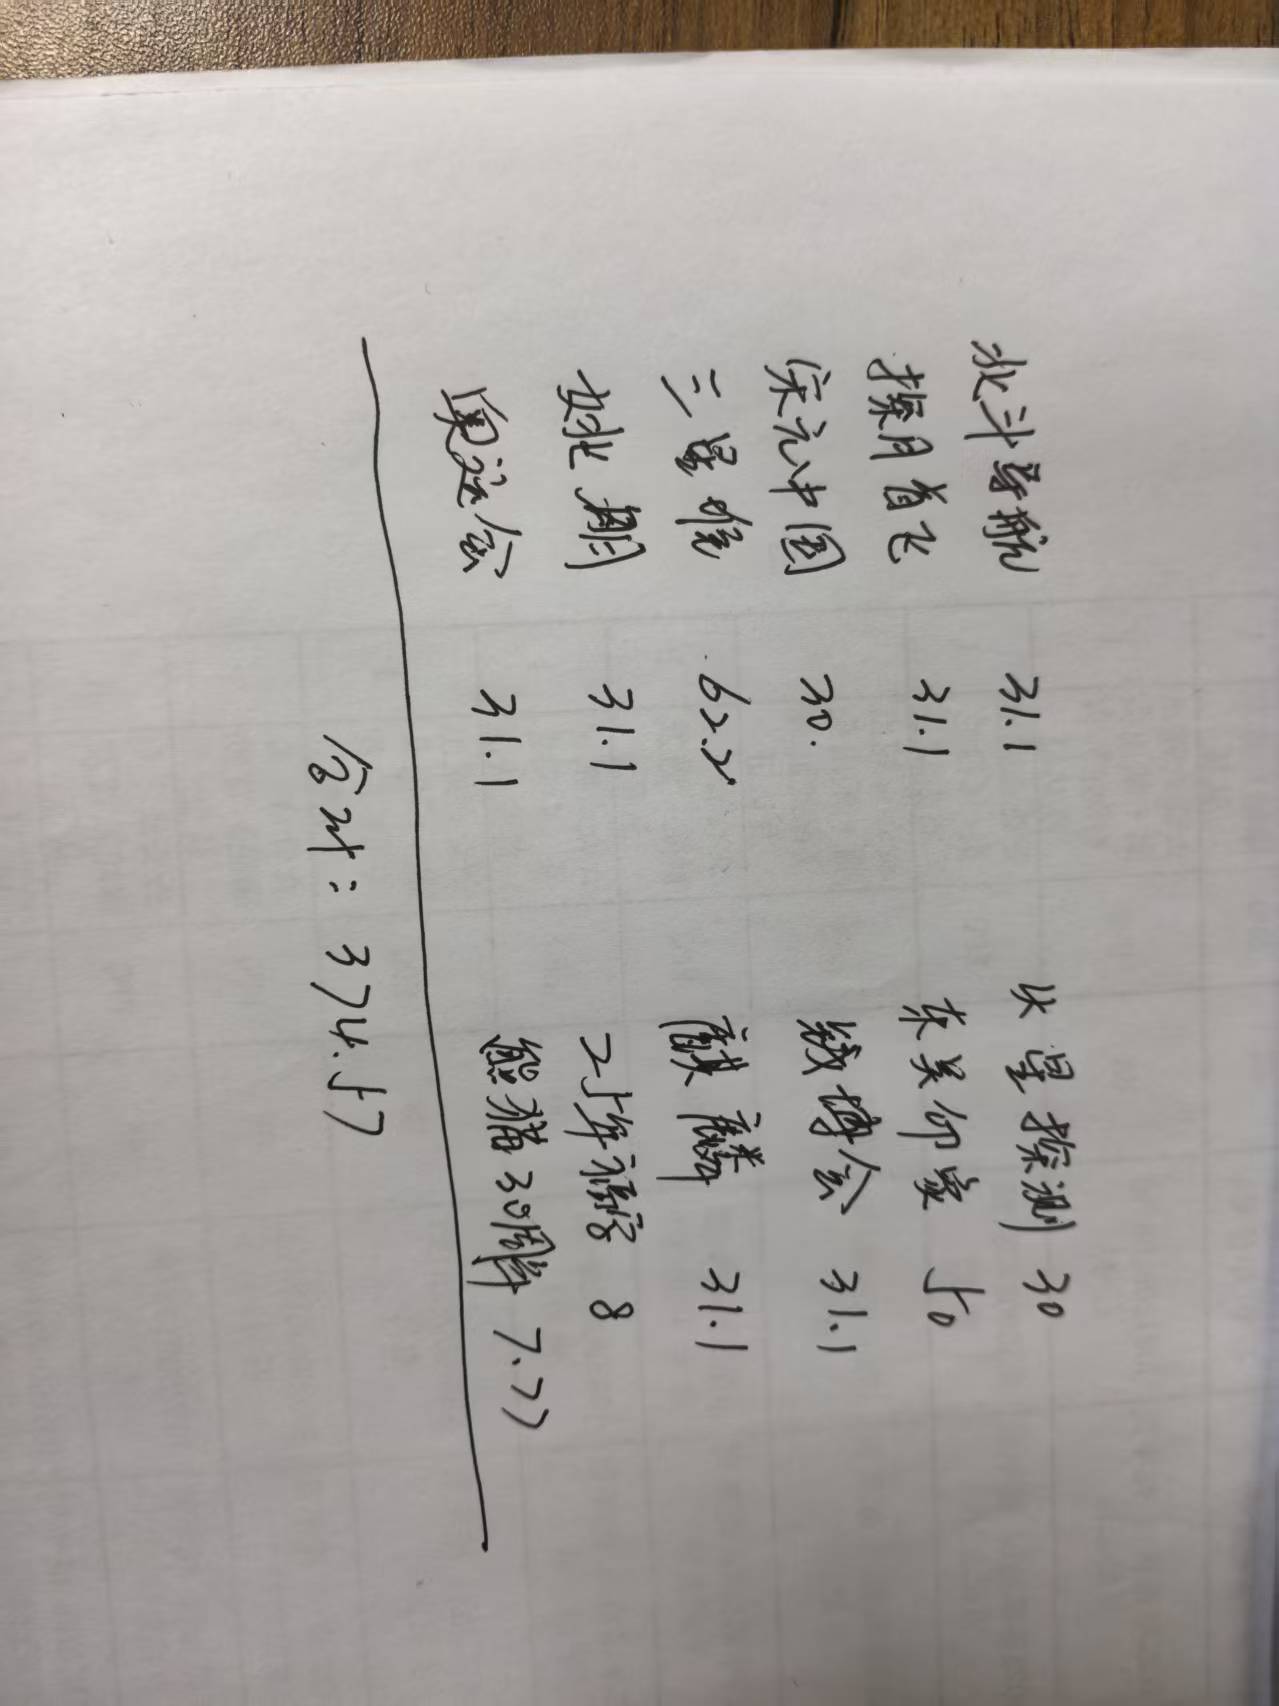 北斗导航 31.1 火星探测 30
探月首飞 31.1 东吴印象 50
宋元中国 30. 钱博会 31.1
三星堆 62.2 麒麟 31.1
31.1 25年福字 8
奥运会 31.1 熊猫30周年 7.77
合计: 374.57